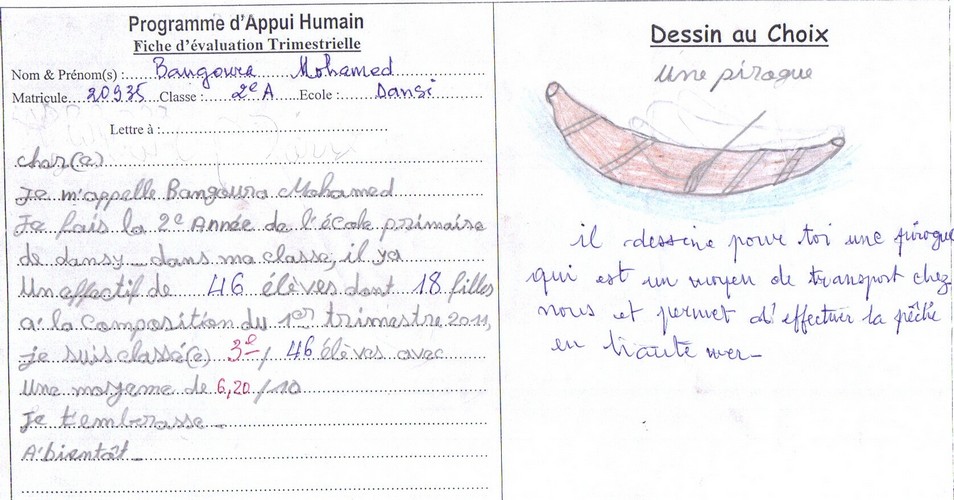 Programme d'Appui Humain
Fiche d'évaluation Trimestrielle
Nom & Prénom(s) : Bangoura Mohamed
Matricule 20935 Classe : 2e A Ecole : Dansi
Lettre à :
cher(e)
Je m'appelle Bangoura Mohamed
Je fais la 2e Année de l'école primaire
de dansy dans ma classe, il ya
Un effectif de 46 élèves dont 18 filles
a' la Composition du 1er trimestre 2011,
je suis classé(e) 3e / 46 élèves avec
Une moyenne de 6,20 / 10
Je t'embrasse
A' bientôt
Dessin au Choix
Une pirogue
il dessine pour toi une pirogue
qui est un moyen de transport chez
nous et permet d'effectuer la pêche
en haute mer